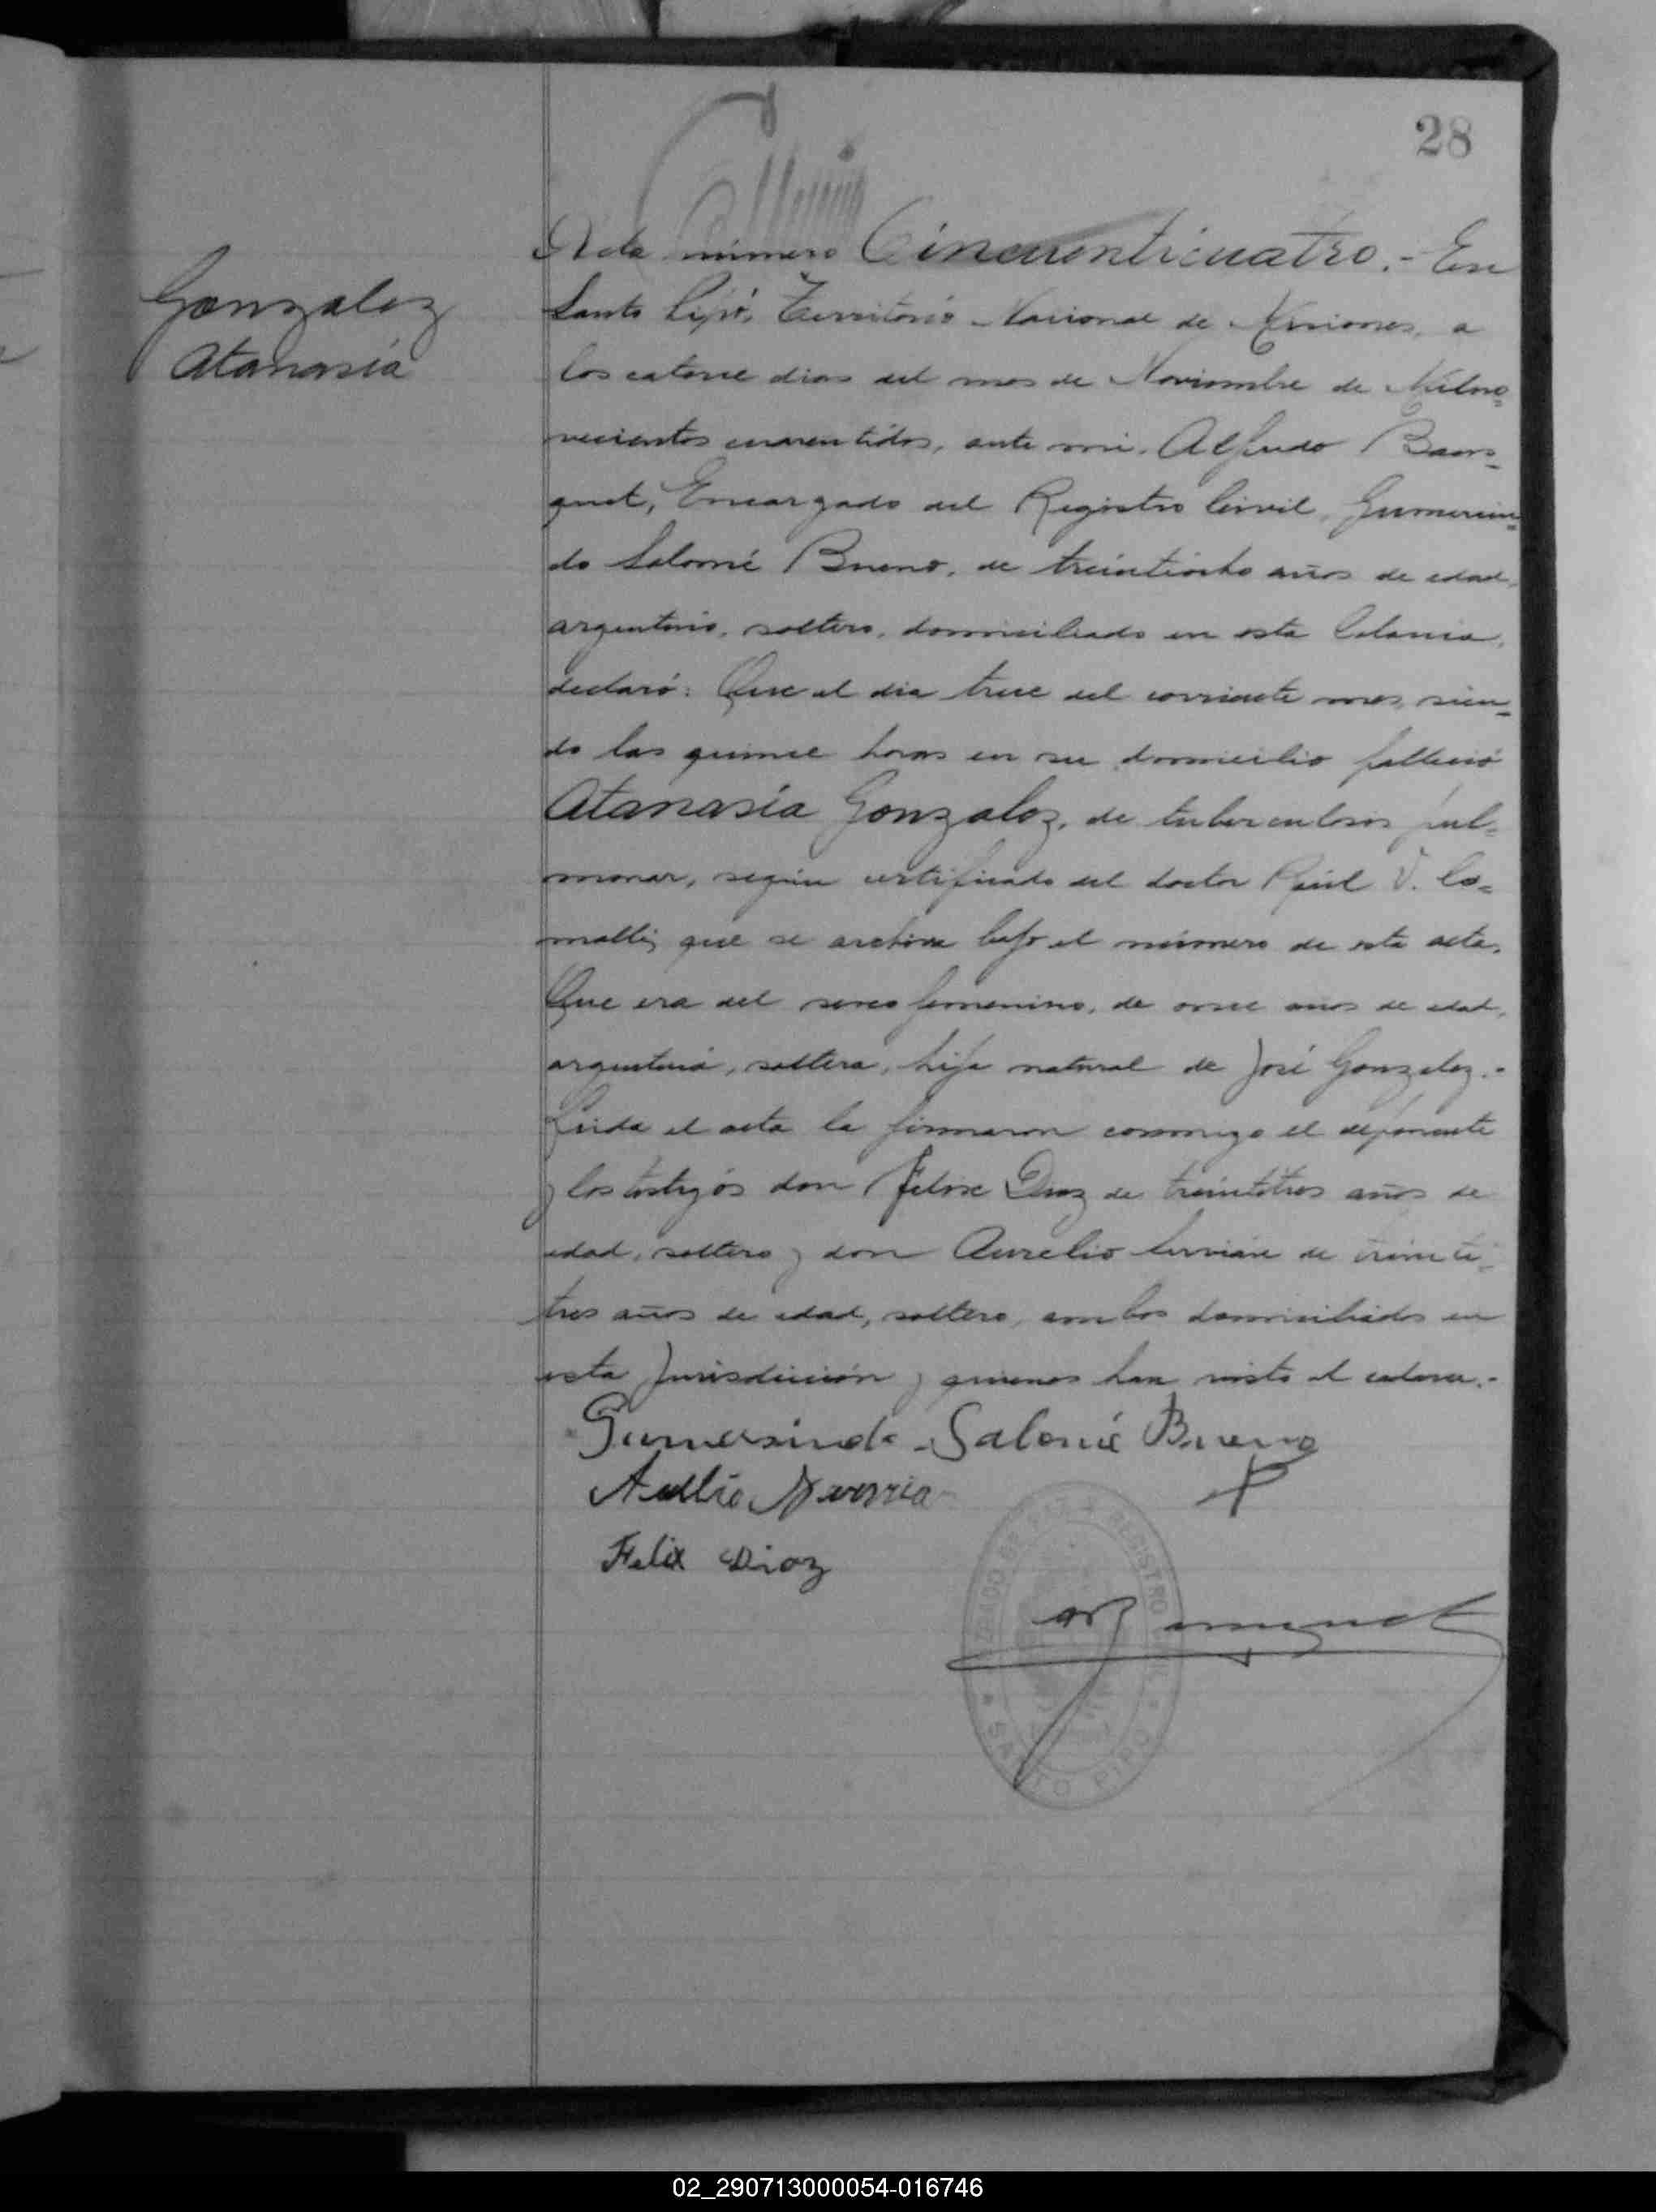 28
Gonzalez
Atanasia
Acta número Cincuenticuatro.- En
Santo Pipó, Territorio Nacional de Misiones, a
los catorce dias del mes de Noviembre de Milno=
vecientos cuarentidos, ante mi, Alfredo
Encargado del Registro Civil, Gumersin=
do Salomé Bueno, de treintiocho años de edad,
argentino, soltero, domiciliado en esta Colonia,
declaró: Que el dia trece del corriente mes, sien=
do las quince horas en su domicilio falleció
Atanasia Gonzalez, de tuberculosis pul=
monar, según certificado del doctor Raúl V. Co=
malli, que se archiva bajo el número de esta acta.
Que era del sexo femenino, de once años de edad,
argentina, soltera, hija natural de José Gonzalez.-
Leida el acta la firmaron conmigo el deponente
y los testigos don Felix Diaz de treintitres años de
edad, soltero y don Aurelio de treinti=
tres años de edad, soltero, ambos domiciliados en
esta Jurisdicción y quienes han visto el cadaver.-
Gumersindo Salomé Bueno
Felix Diaz
REGISTRO CIVIL
SANTO PIPO
02_290713000054-016746